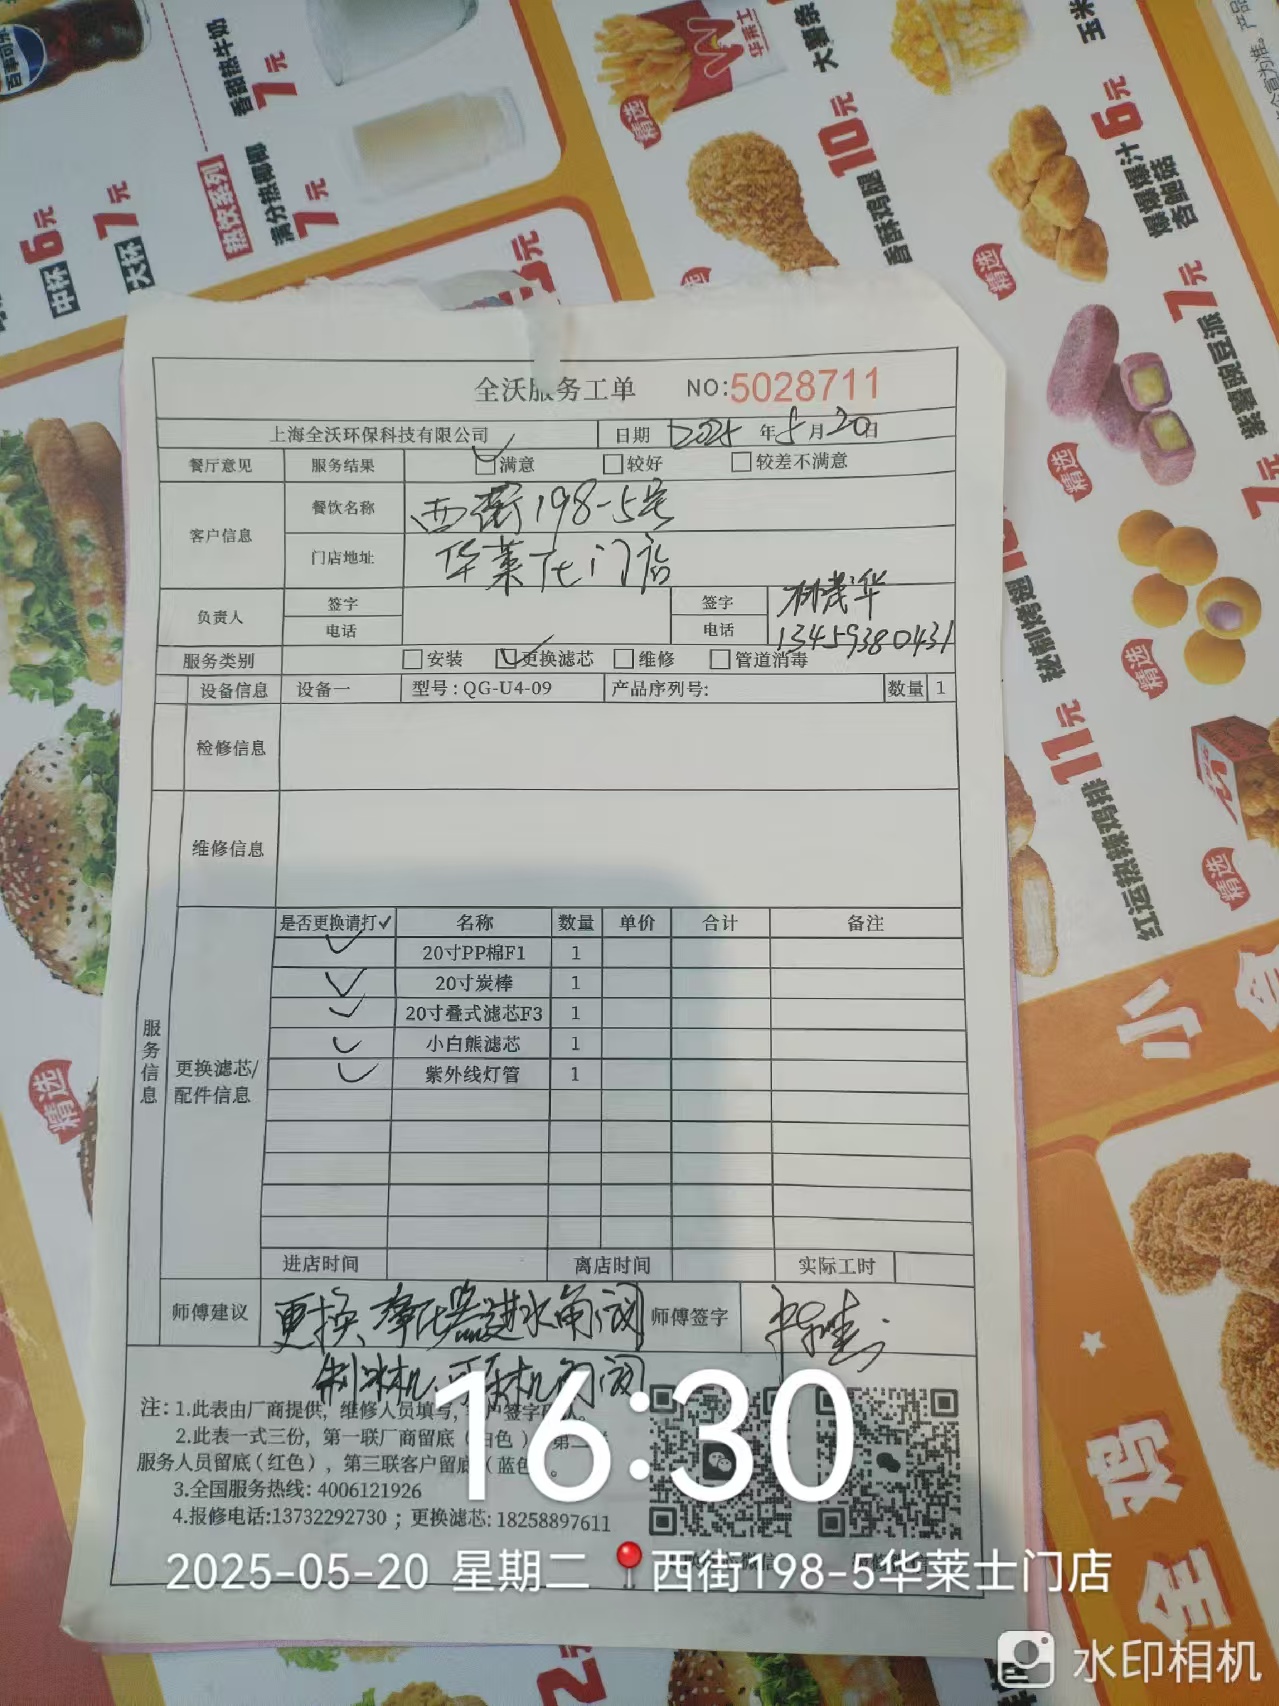 百事可乐
香甜热牛奶
7元
热饮系列
满分热椰椰
7元
中杯 6元
大杯 7元
精选
华莱士
大薯条
10元
香酥鸡腿
玉米
6元
爆爆爆汁
杏鲍菇
精选
7元
紫薯豌豆派
精选
秘制烤翅
精选
11元
红运热辣鸡排
精选
精选
小
金
鸡
全沃服务工单 NO:5028711
上海全沃环保科技有限公司 日期 2025年5月20日
餐厅意见 服务结果 满意 较好 较差不满意
客户信息 餐饮名称 西街198-5号
门店地址 华莱士门店
负责人 签字 签字 林茂华
电话 电话 13459380431
服务类别 安装 更换滤芯 维修 管道消毒
设备信息 设备一 型号:QG-U4-09 产品序列号: 数量 1
检修信息
维修信息
服务信息
更换滤芯/
配件信息
是否更换请打✓ 名称 数量 单价 合计 备注
✓ 20寸PP棉F1 1
✓ 20寸炭棒 1
✓ 20寸叠式滤芯F3 1
✓ 小白熊滤芯 1
✓ 紫外线灯管 1
进店时间 离店时间 实际工时
师傅建议 更换净化器进水角阀 师傅签字
制冰机
注: 1.此表由厂商提供, 维修人员填写,
2.此表一式三份, 第一联厂商留底(白色)
服务人员留底(红色), 第三联客户留底(蓝色)。
3.全国服务热线: 4006121926
4.报修电话:13732292730 ; 更换滤芯: 18258897611
16:30
2025-05-20 星期二 西街198-5华莱士门店
水印相机